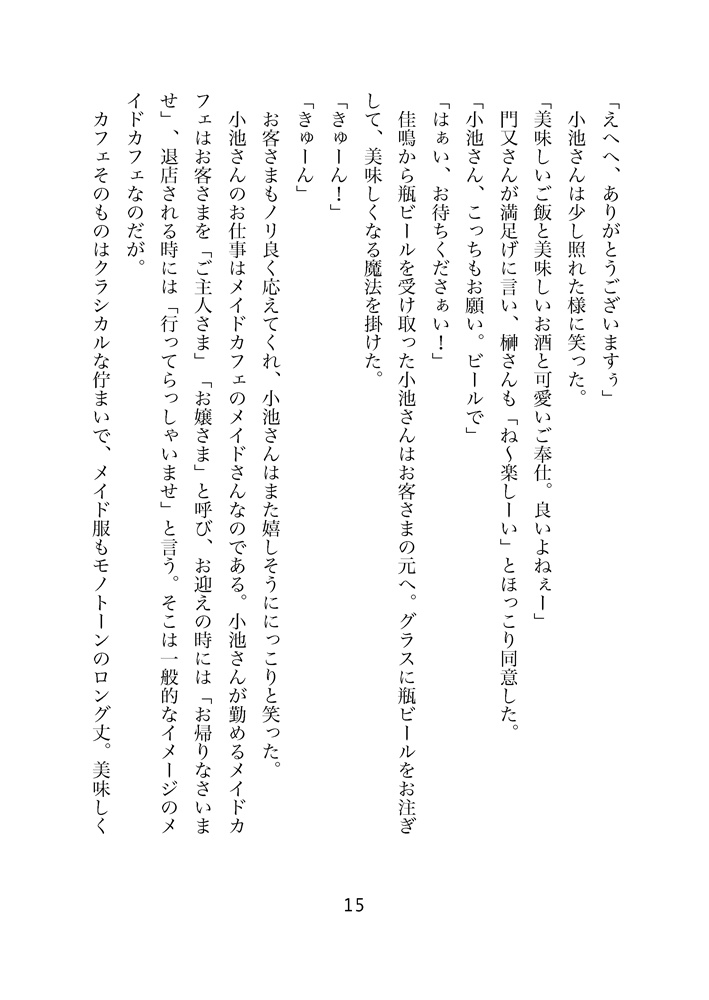 「えへへ、ありがとうございますぅ」
小池さんは少し照れた様に笑った。
「美味しいご飯と美味しいお酒と可愛いご奉仕。良いよねぇー」
門又さんが満足げに言い、榊さんも「ね〜楽しーい」とほっこり同意した。
「小池さん、こっちもお願い。ビールで」
「はぁい、お待ちくださぁい！」
佳鳴から瓶ビールを受け取った小池さんはお客さまの元へ。グラスに瓶ビールをお注ぎ
して、美味しくなる魔法を掛けた。
「きゅーん！」
「きゅーん」
お客さまもノリ良く応えてくれ、小池さんはまた嬉しそうににっこりと笑った。
小池さんのお仕事はメイドカフェのメイドさんなのである。小池さんが勤めるメイドカ
フェはお客さまを「ご主人さま」「お嬢さま」と呼び、お迎えの時には「お帰りなさいま
せ」、退店される時には「行ってらっしゃいませ」と言う。そこは一般的なイメージのメ
イドカフェなのだが。
カフェそのものはクラシカルな佇まいで、メイド服もモノトーンのロング丈。美味しく
15